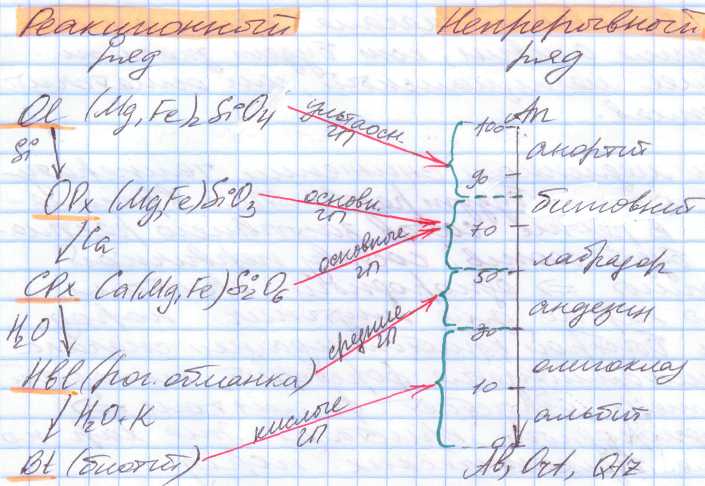 Реакционный
ряд
Непрерывный
ряд
Ol (Mg,Fe)2SiO4
ультраосн.
ГП
100
An
анортит
Si
90
OPx (Mg,Fe)SiO3
основн.
ГП
битовнит
70
Ca
основные
ГП
лабрадор
50
CPx Ca(Mg,Fe)Si2O6
андезин
H2O
средние
ГП
30
Hbl (рог. обманка)
олигоклаз
10
H2O+K
кислые
ГП
альбит
0
Bt (биотит)
Ab, Ort, Qtz